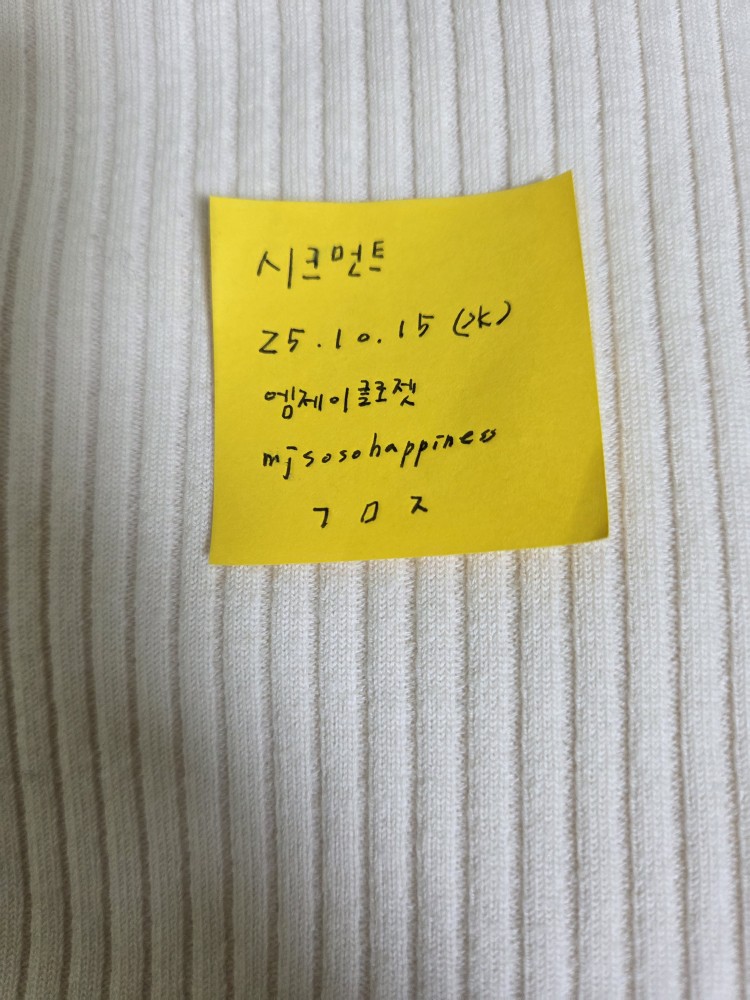 시크먼트
25.10.15 (水)
엠제이클로젯
mjsosohappiness
ㄱㅁㅈ